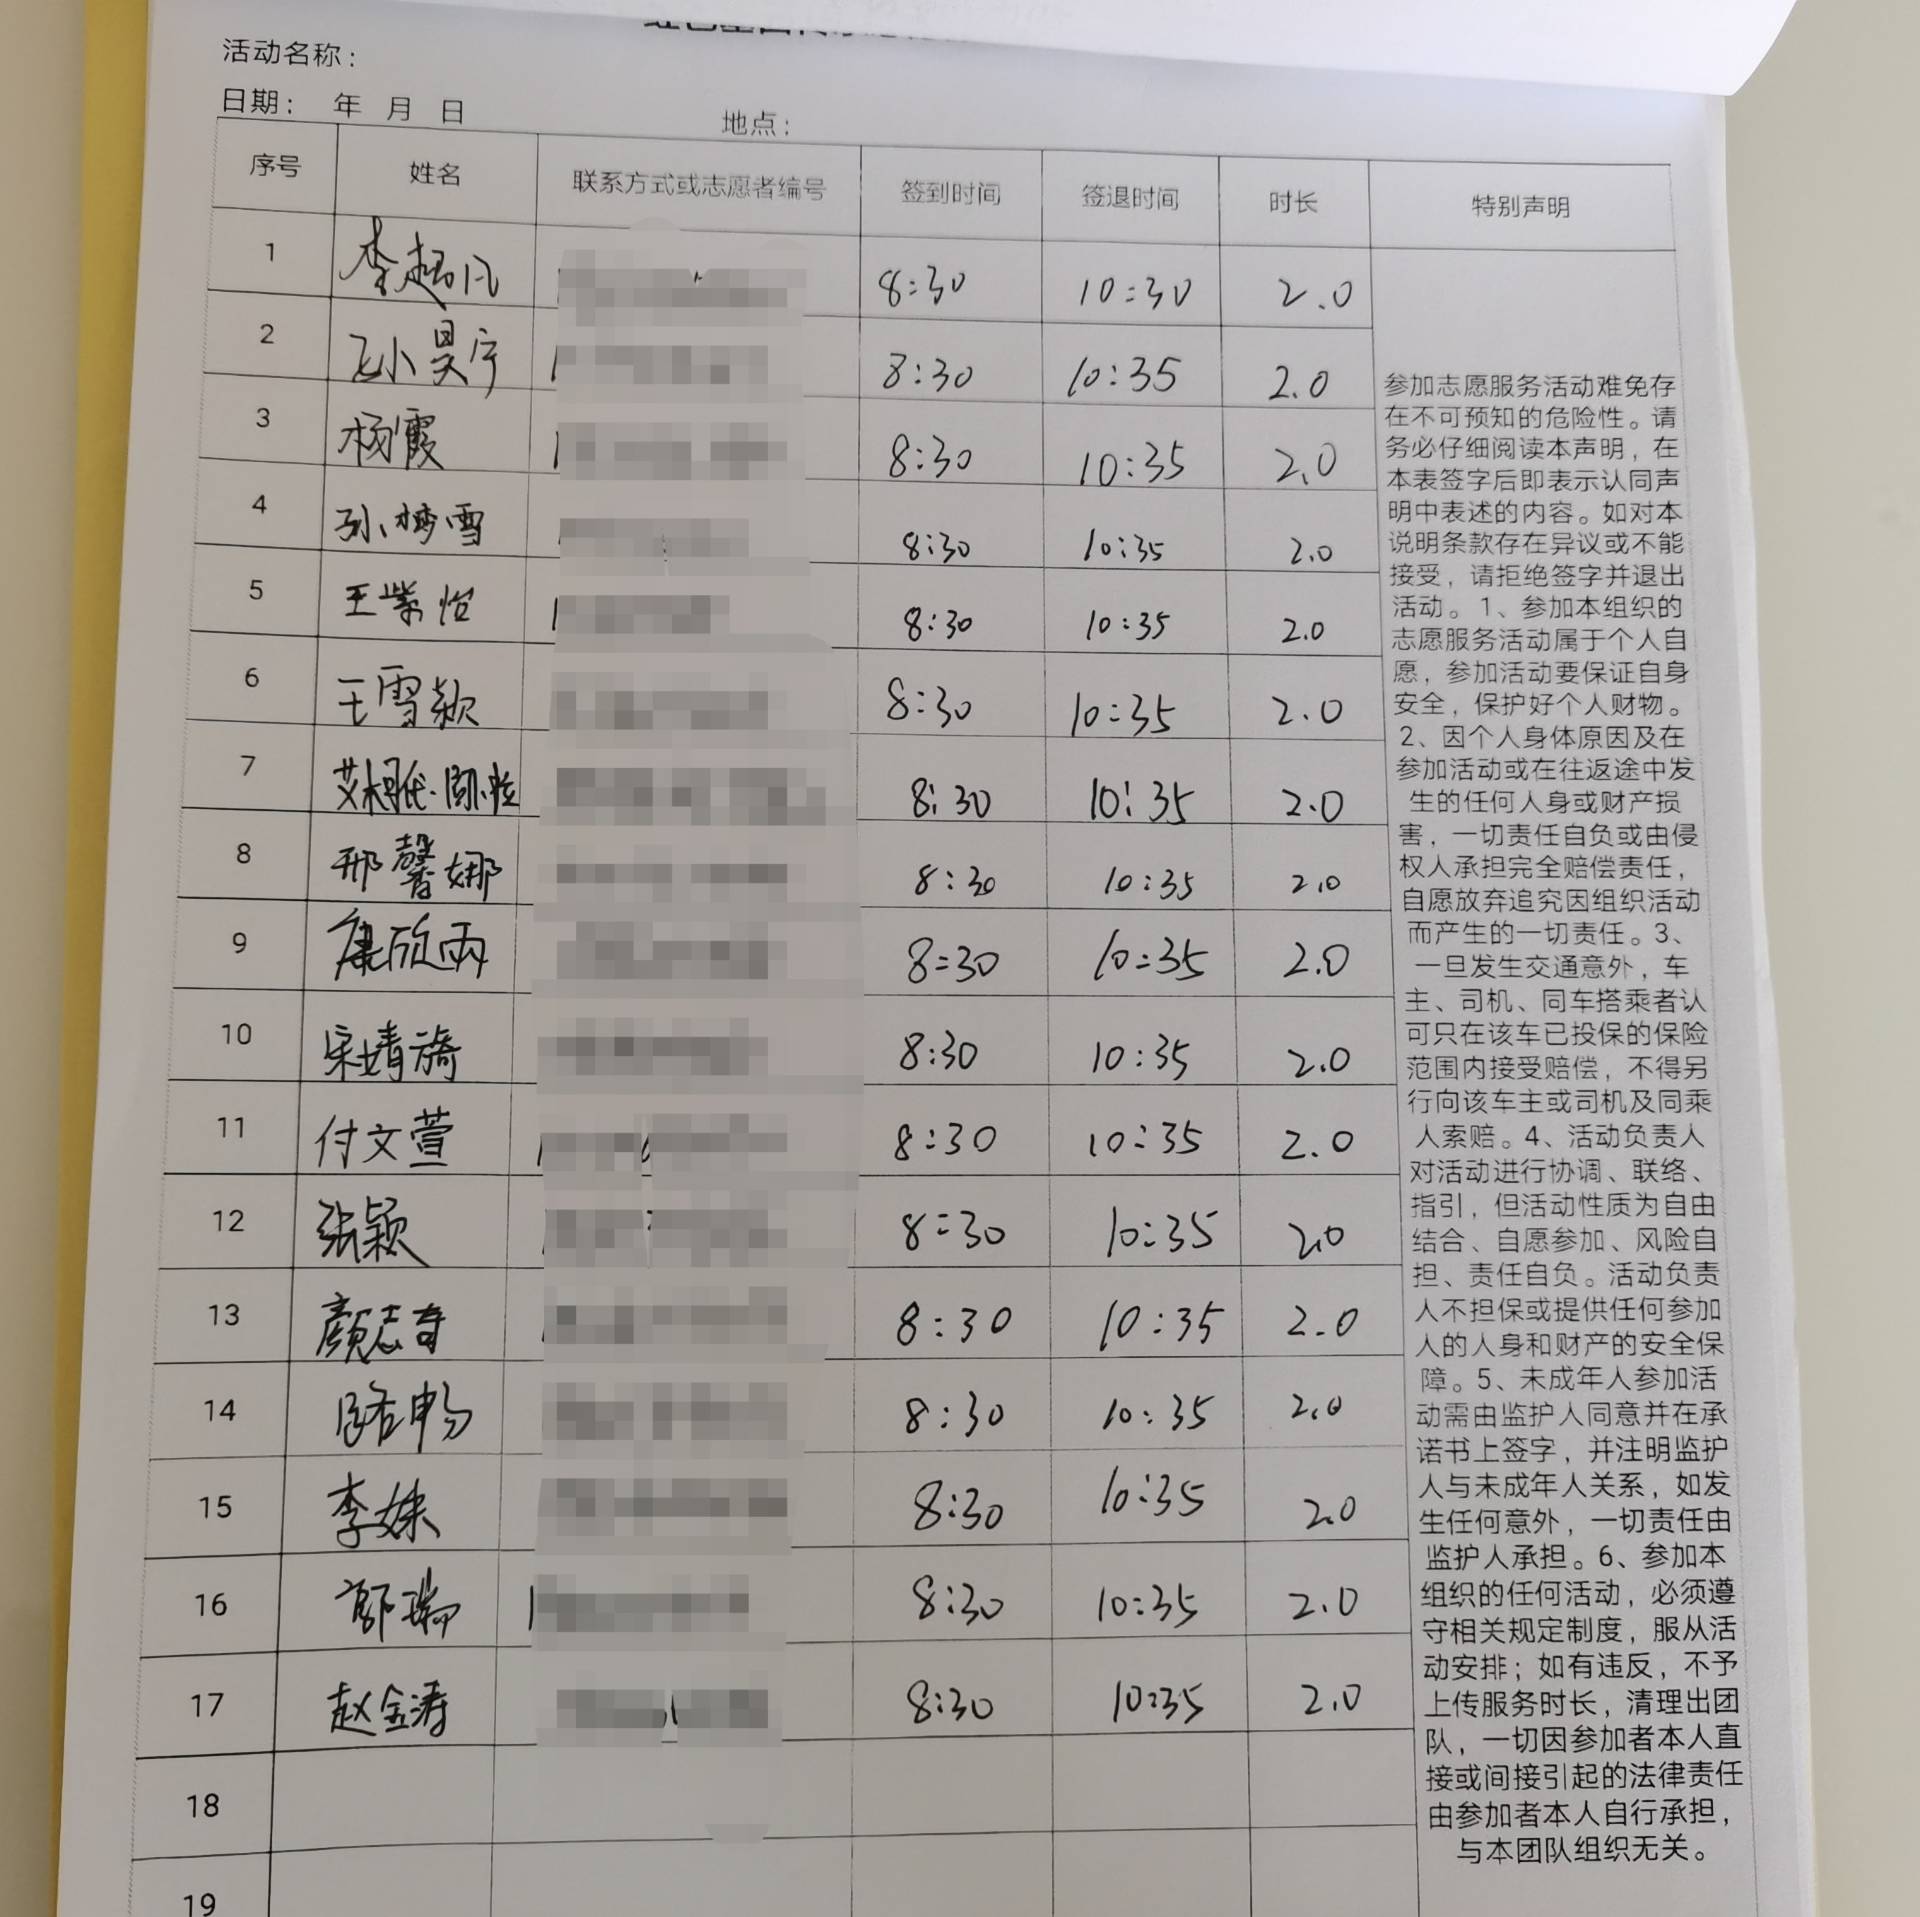 活动名称：
日期： 年 月 日 地点：
序号 姓名 联系方式或志愿者编号 签到时间 签退时间 时长 特别声明
1 李超凡 8:30 10:30 2.0
2 小昊宇 8:30 10:35 2.0
3 杨霞 8:30 10:35 2.0
4 孙梦雪 8:30 10:35 2.0
5 王紫怡 8:30 10:35 2.0
6 王雪颖 8:30 10:35 2.0
7 8:30 10:35 2.0
8 邢馨娜 8:30 10:35 2.0
9 康欣雨 8:30 10:35 2.0
10 宋婧旖 8:30 10:35 2.0
11 付文萱 8:30 10:35 2.0
12 张颖 8:30 10:35 2.0
13 颜志奇 8:30 10:35 2.0
14 路畅 8:30 10:35 2.0
15 李姝 8:30 10:35 2.0
16 郭瑞 8:30 10:35 2.0
17 赵金涛 8:30 10:35 2.0
18
19
参加志愿服务活动难免存
在不可预知的危险性。请
务必仔细阅读本声明，在
本表签字后即表示认同声
明中表述的内容。如对本
说明条款存在异议或不能
接受，请拒绝签字并退出
活动。1、参加本组织的
志愿服务活动属于个人自
愿，参加活动要保证自身
安全，保护好个人财物。
2、因个人身体原因及在
参加活动或在往返途中发
生的任何人身或财产损
害，一切责任自负或由侵
权人承担完全赔偿责任，
自愿放弃追究因组织活动
而产生的一切责任。3、
一旦发生交通意外，车
主、司机、同车搭乘者认
可只在该车已投保的保险
范围内接受赔偿，不得另
行向该车主或司机及同乘
人索赔。4、活动负责人
对活动进行协调、联络、
指引，但活动性质为自由
结合、自愿参加、风险自
担、责任自负。活动负责
人不担保或提供任何参加
人的人身和财产的安全保
障。5、未成年人参加活
动需由监护人同意并在承
诺书上签字，并注明监护
人与未成年人关系，如发
生任何意外，一切责任由
监护人承担。6、参加本
组织的任何活动，必须遵
守相关规定制度，服从活
动安排；如有违反，不予
上传服务时长，清理出团
队，一切因参加者本人直
接或间接引起的法律责任
由参加者本人自行承担，
与本团队组织无关。